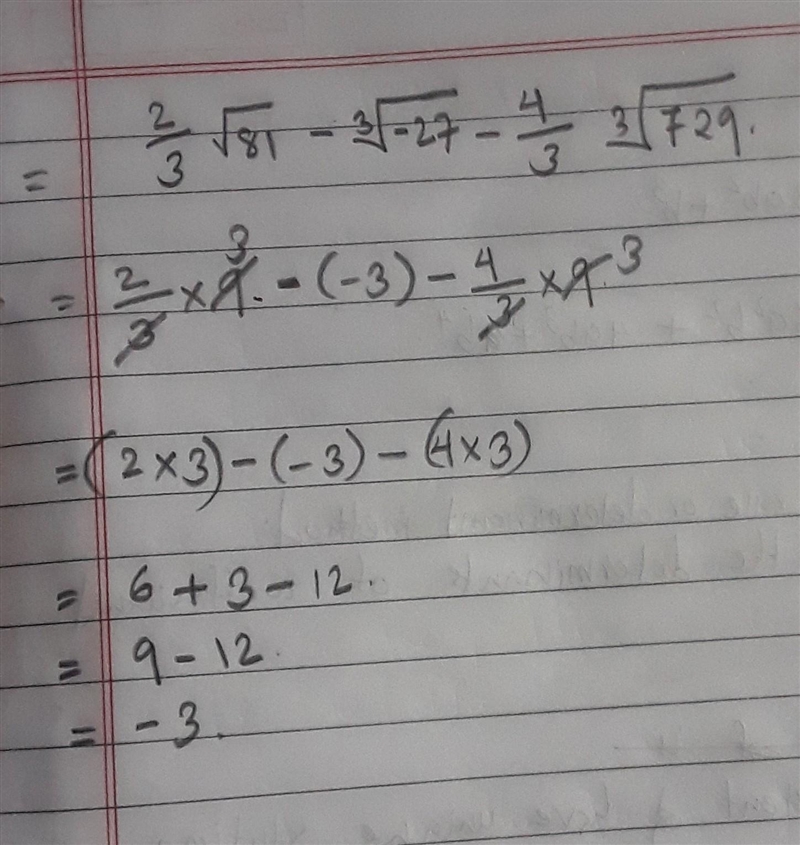 = 2/3 √81 - ∛-27 - 4/3 ∛729.
= 2/3 × 9. 3 - (-3) - 4/3 × 9. 3
= (2 × 3) - (-3) - (4 × 3)
= 6 + 3 - 12.
= 9 - 12.
= - 3.